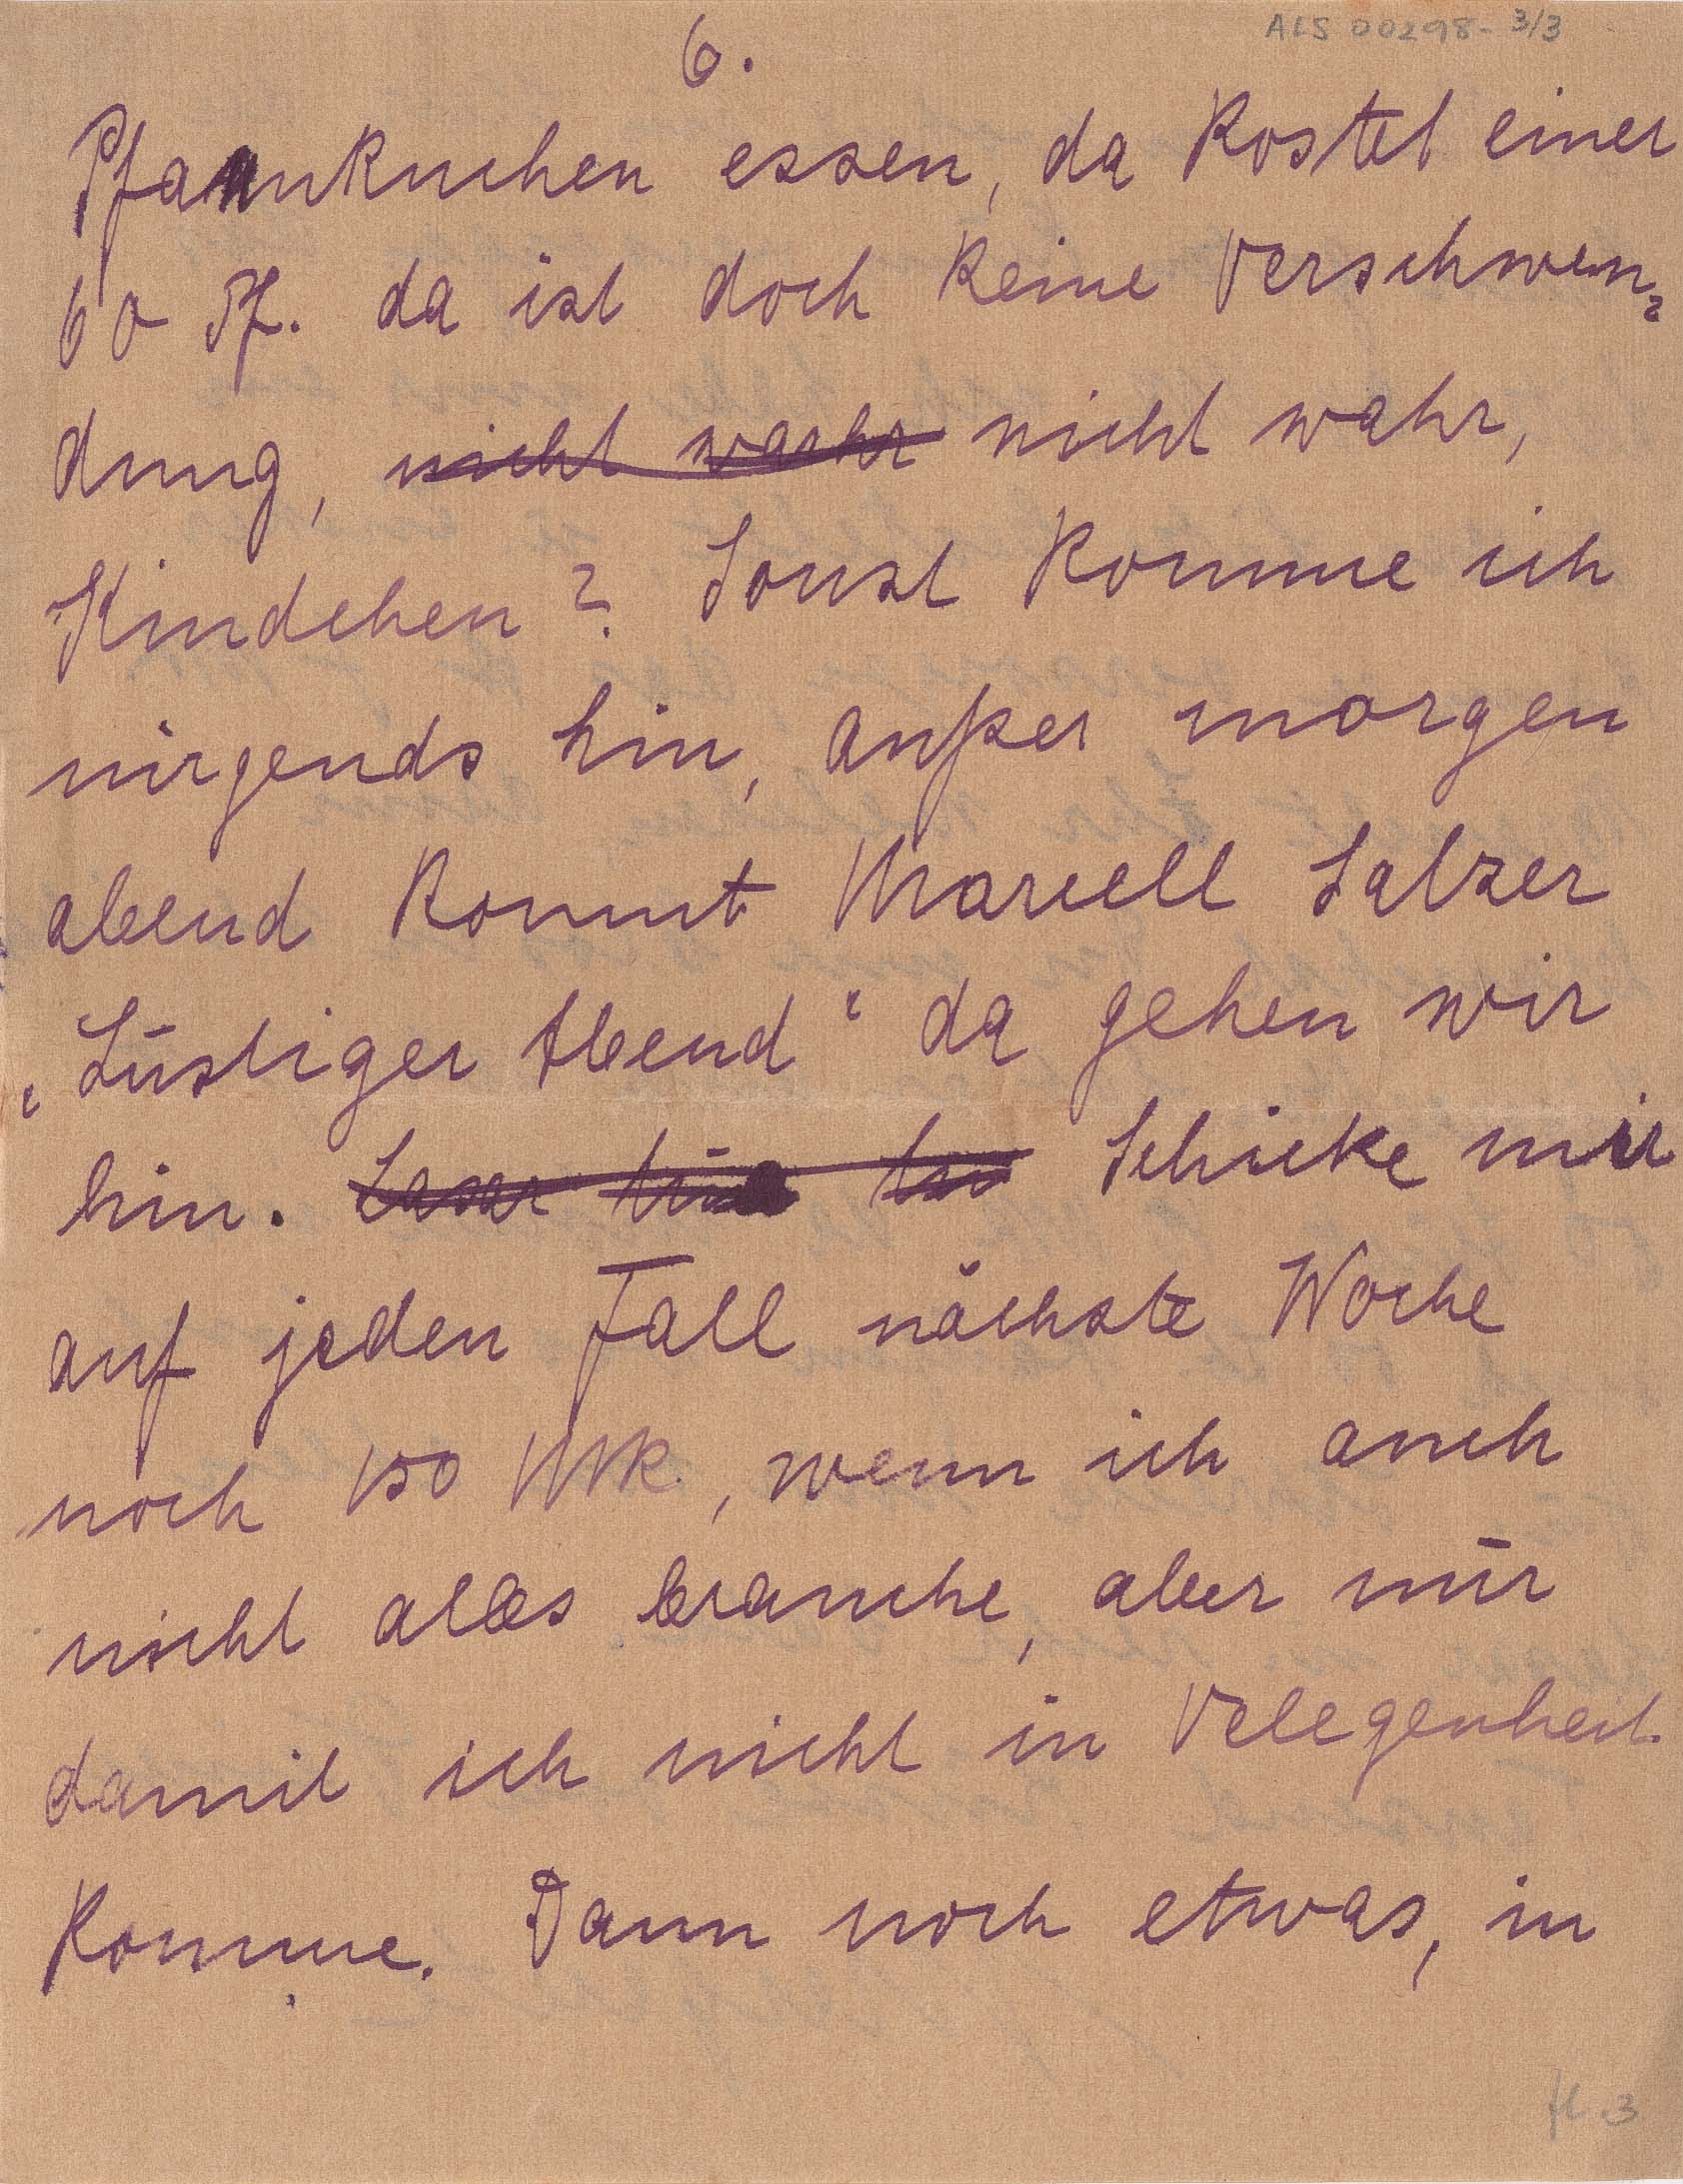 ALS 00298-3/3
6.
Pfannkuchen essen, da kostet einer
60 Pf. da ist doch keine Verschwen=
dung, nicht wahr nicht wahr,
Kindchen? Sonst komme ich
nirgends hin, außer morgen
abend kommt Marcell Salzer
„Lustiger Abend“ da gehen wir
hin. Schicke mir
auf jeden Fall nächste Woche
noch 150 Mk., wenn ich auch
nicht alles brauche, aber nur
damit ich nicht in Velegenheit
komme. Dann noch etwas, in
fl. 3